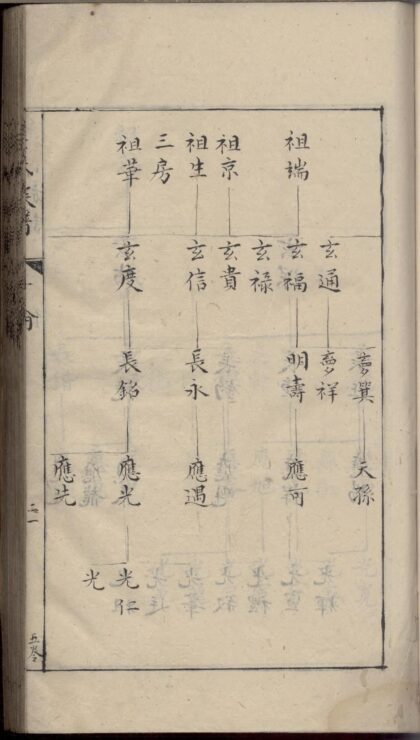 夢 天孫
玄通 夢祥
祖端 玄福 明壽 應可
玄祿
祖京 玄貴
祖生 玄信 長永 應遇
三房
祖華 玄度 長銘 應光 光
光
應先
族譜